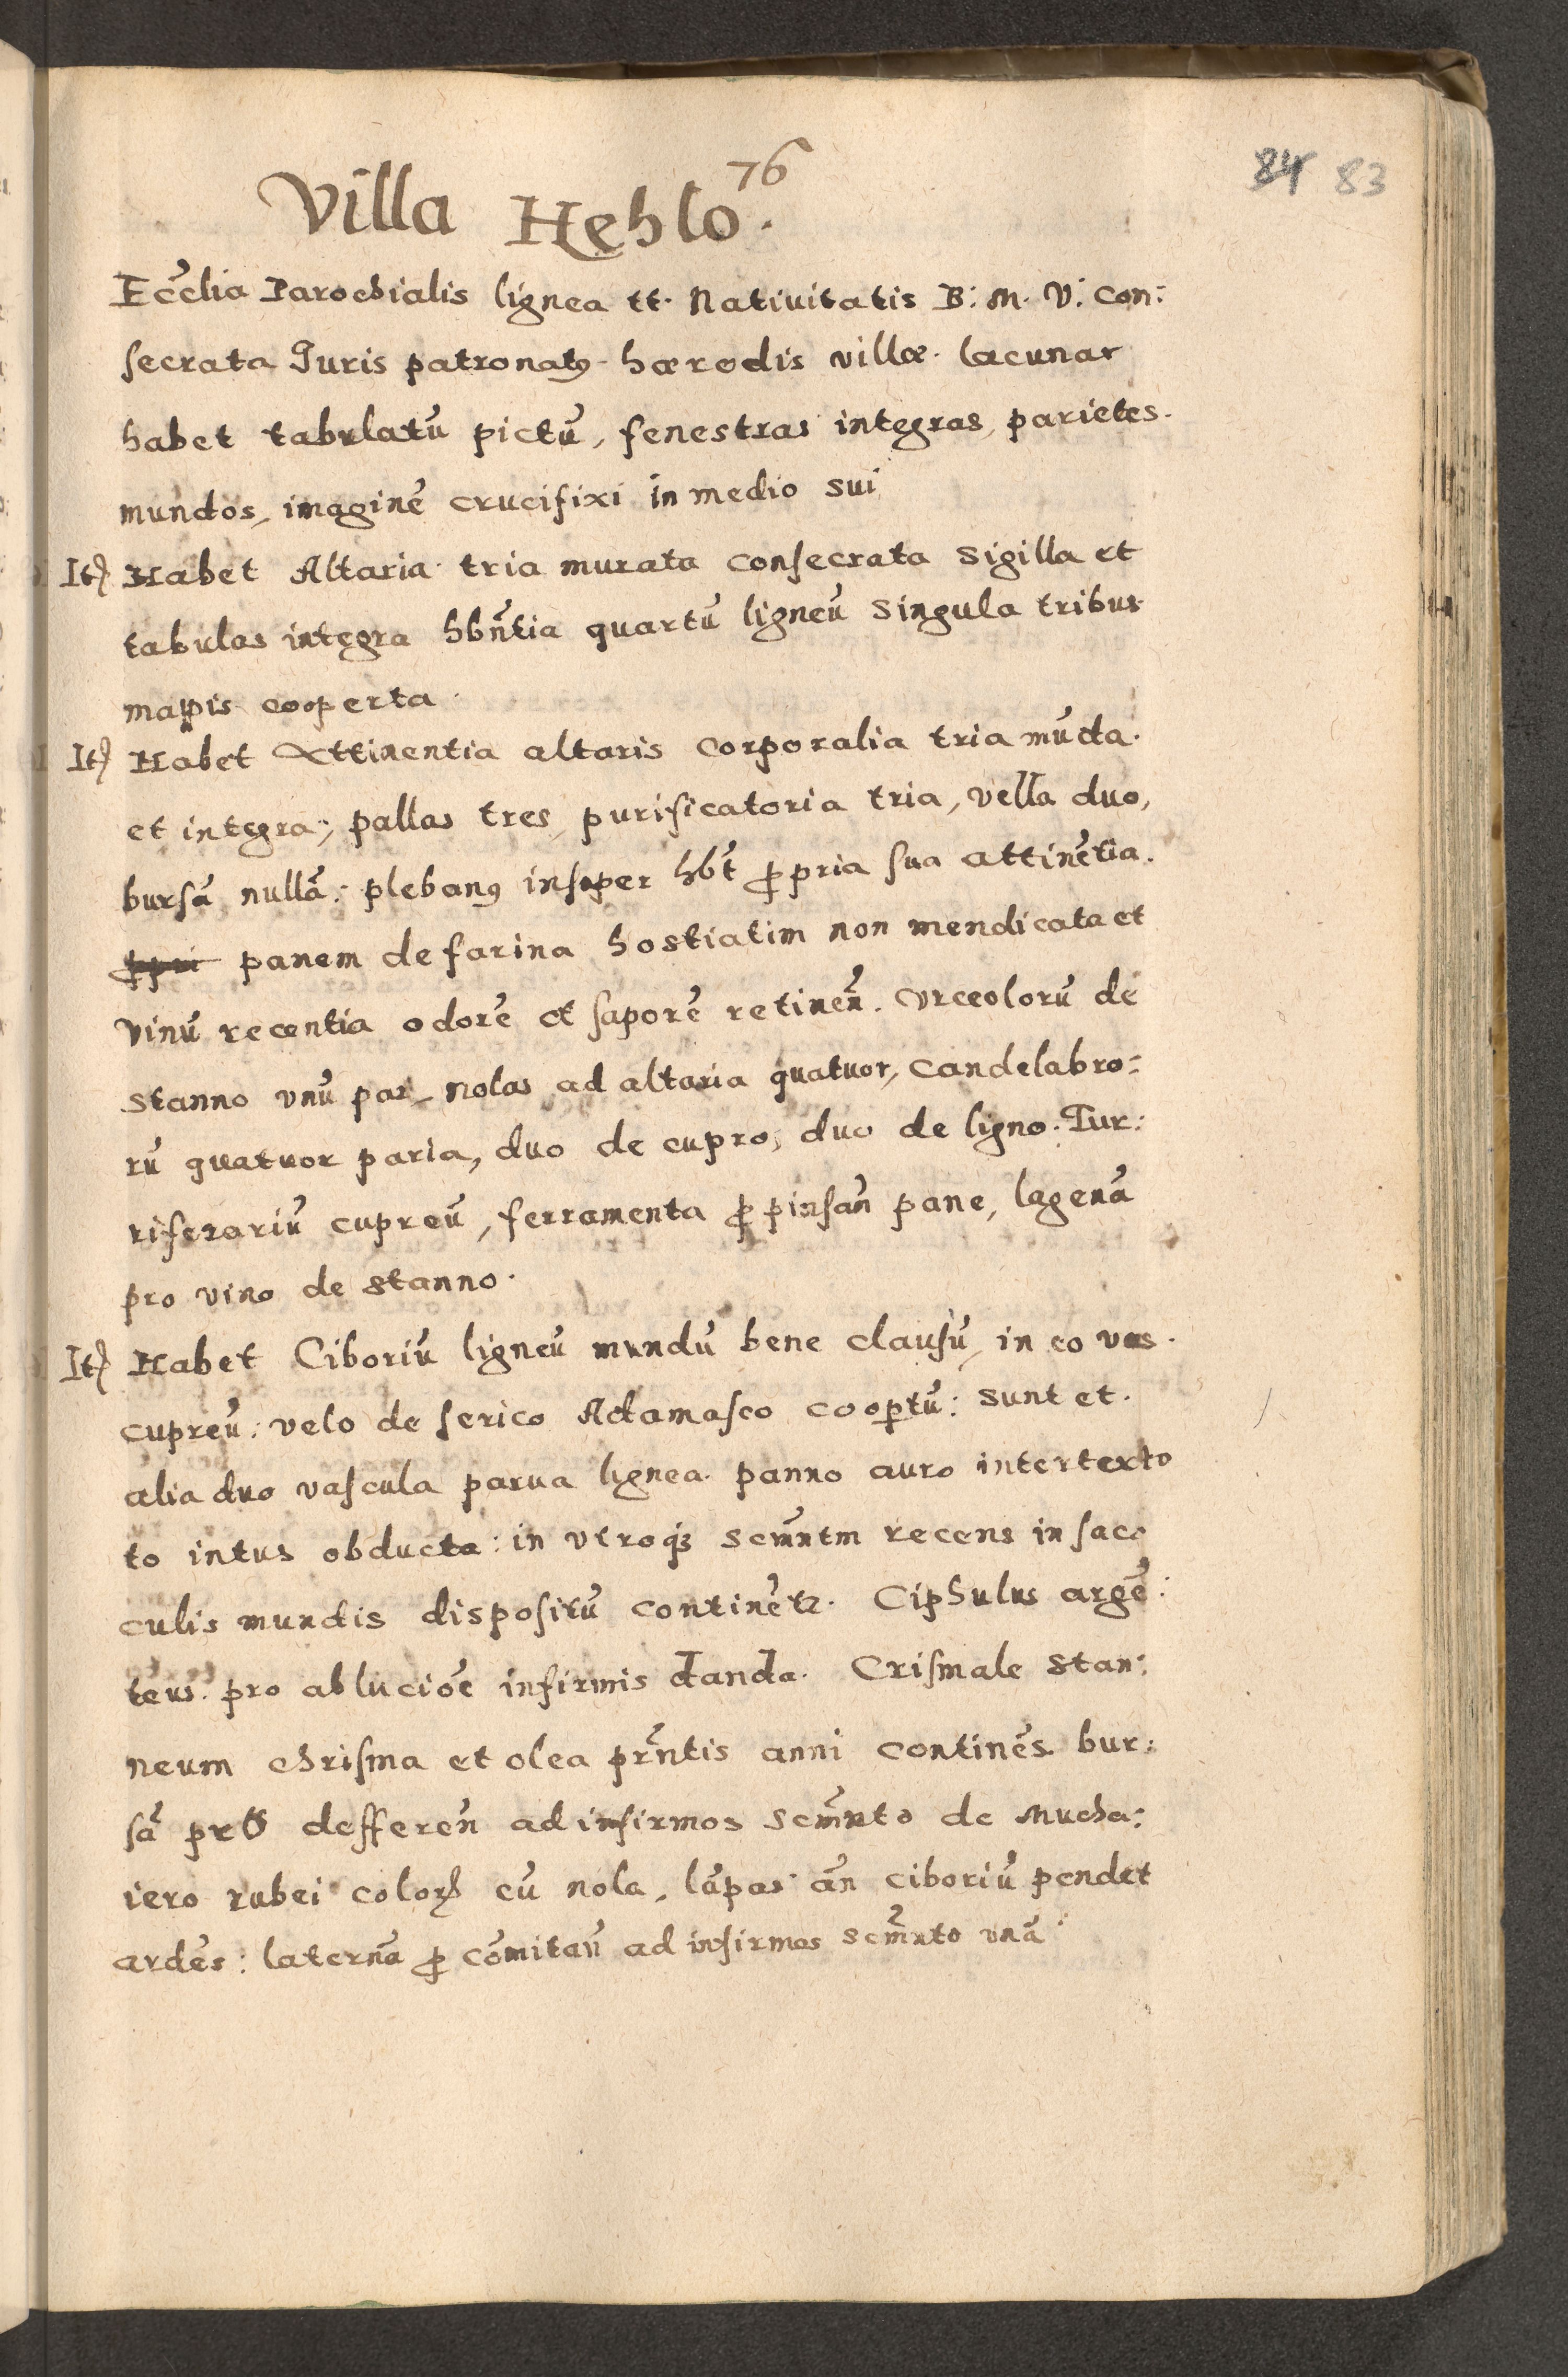 76
84 83
Villa Hehlo.
Eccĺia Parochialis lignea tt. Natiuitatis B: M. V: con:
secrata Juris patronatꝰ hæredis villæ. lacunar
habet tabulatū pictū, fenestras integras, parietes.
mundos, imaginē crucifixi in medio sui
It) Habet Altaria tria murata consecrata sigilla et
tabulas integra hbñtia quartū ligneū singula tribus
mappis cooperta.
It) Habet Attinentia altaris corporalia tria mūda.
et integra, pallas tres, purificatoria tria, vella duo,
bursā nullā: plebanꝰ insuper hb̄t ꝓpria sua attinētia.
ꝓpri panem de farina hostiatim non mendicata et
vinū recentia odorē et saporē retineñ. vrceolorū de
stanno vnū par, nolas ad altaria quatuor, candelabro:
rū quatuor paria, duo de cupro, duo de ligno. Tur:
riferariū cupreū, ferramenta ꝓ pinsañ pane, lagenā
pro vino de stanno.
It) Habet Ciboriū ligneū mundū bene clausū, in eo vas.
cupreū: velo de serico Adamasco coop̄tū: sunt et.
alia duo vascula parua lignea. panno auro intertexto
to intus obducta: in vtroqꝫ scm̄ntm recens in sac
culis mundis dispositū continēt2. Ciphulus argē:
teus pro ablucioē infirmis danda. Crismale stan:
neum chrisma et olea pr̄ntis anni continēs. bur:
sā pro defferen̄ ad infirmos scm̄nto de Mucha:
iero rubei colorꝭ cū nola, lāpas añ ciboriū pendet
ardēs: laternā ꝓ cōmitañ ad infirmos scm̄nto vnā